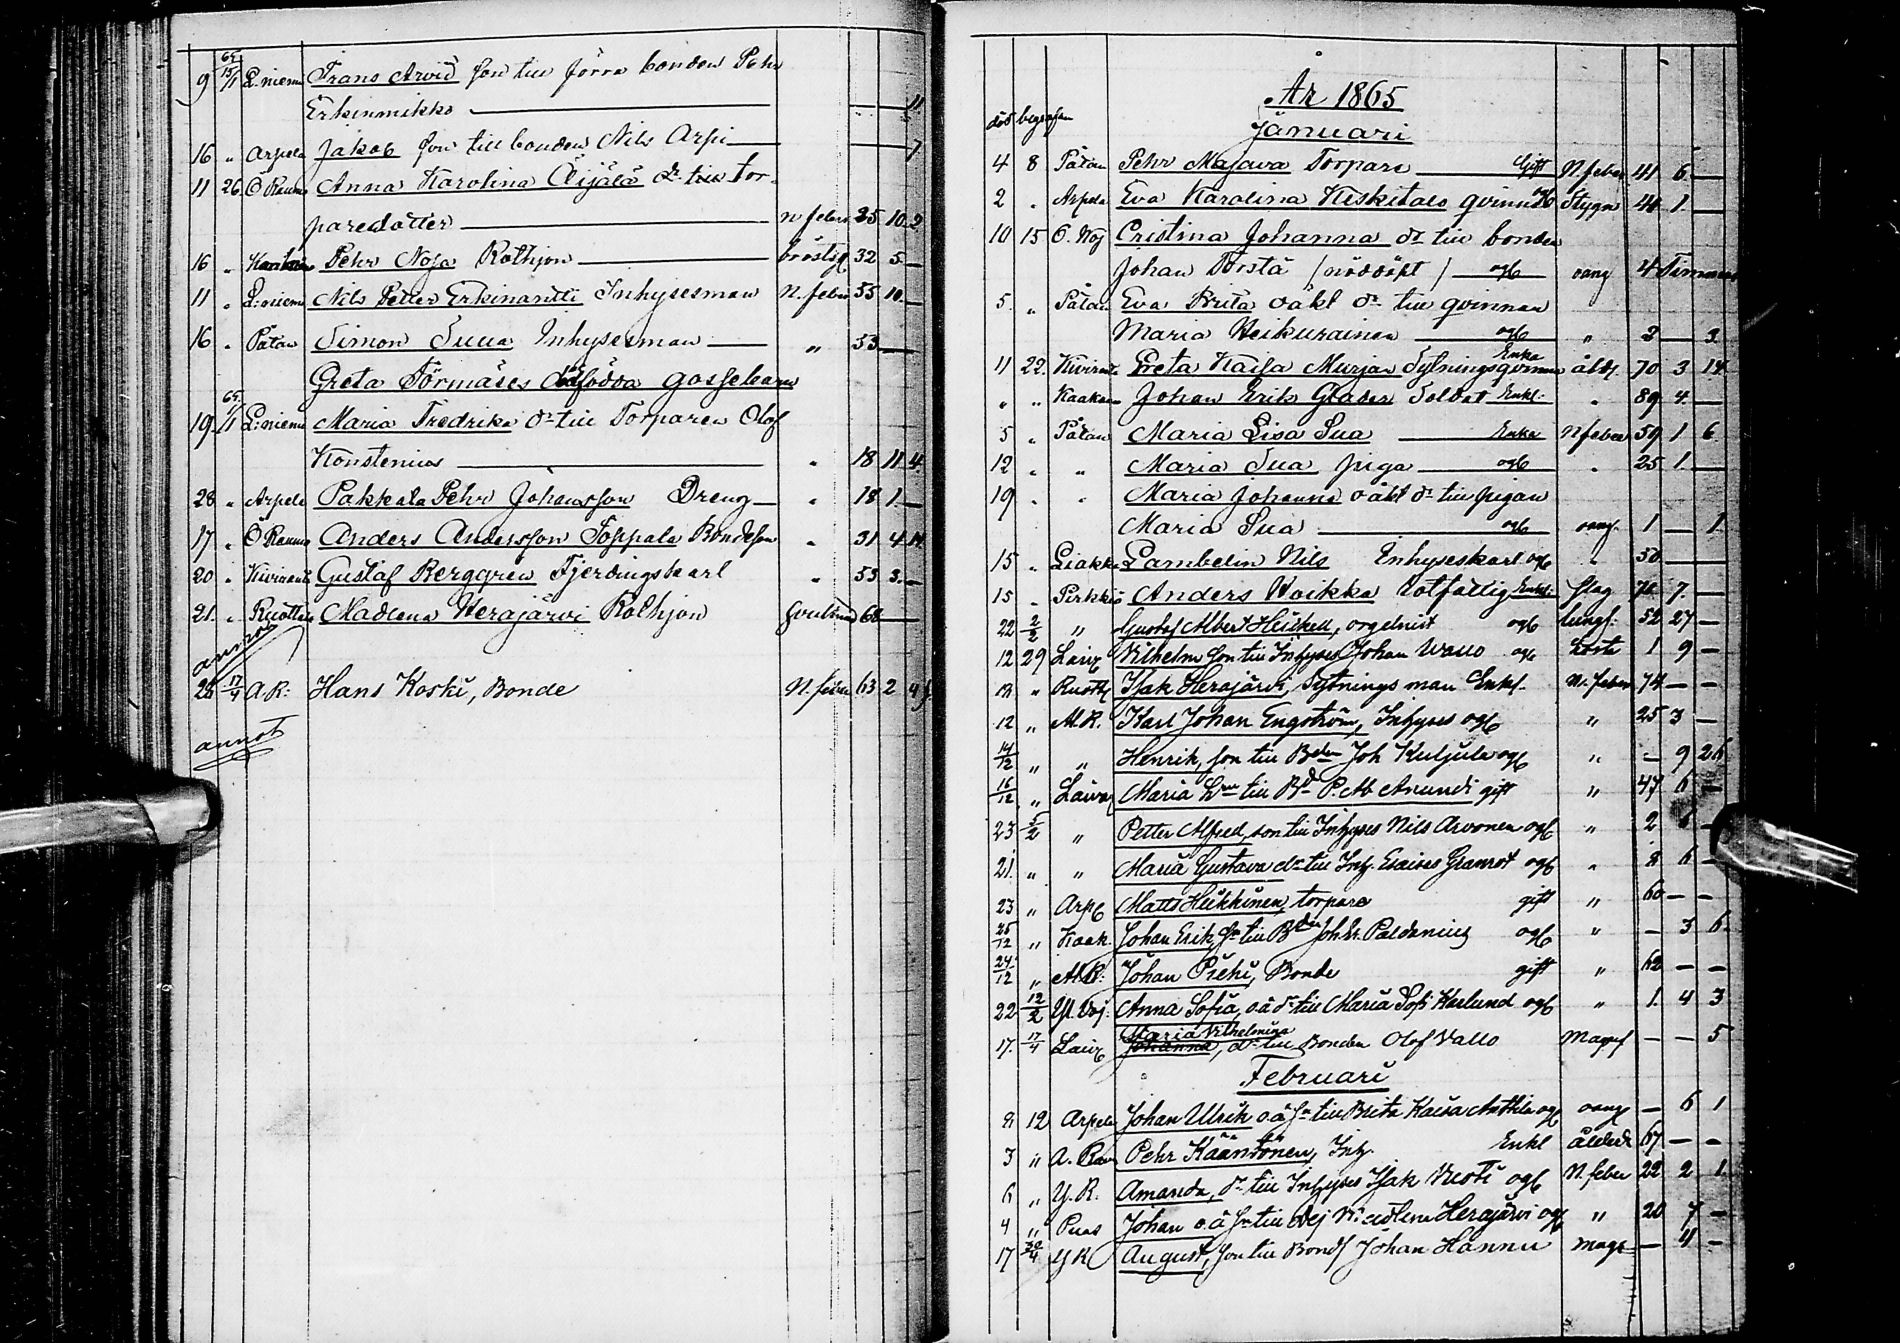 65
9 15/1 L:niemi Frans Arvid son till förra bonden Pehr
Erkinmikko — 11
16 " Arpela Jakob son till bonden Nils Arpi — 7
11 26 Ö Raumo Anna Karolina Äijälä dr till tor-
paredotter — n feber 25 10 2
16 " Pehr Noja Rothjon — bröstsj 32 5 —
11 " L:niemi Nils Petter Erkinantti Inhysesman N. feber 55 10 —
16 " Påtan Simon Suua Inhysesman — " 53 —
Greta Törmäses dödfödda gossebarn
65
19 /1 L:niemi Maria Fredrika dr till Torparen Olof
Konstenius — " 18 11 4
28 " Arpela Pakkala Pehr Johansson Dreng — " 18 1 —
17 " Ö Raumo Anders Andersson Toppala Bondeson " 31 4 14
20 " Kiviranta Gustaf Berggren Fjerdingskarl " 53 3 —
21 " Ruottala Madlena Herajärvi Rothjon 60 —
annot
28 17/4 A.R: Hans Koski, Bonde N. feber 63 2 4
annot
År 1865
död begrafen
Januari
4 8 Påtan Pehr Majava Torpare — Gift N. feber 41 6 —
2 " Arpela Eva Karolina Keskitalo qvinna ogft Stygn 44 1 —
10 15 Ö. Woj Cristina Johanna dr till bonden
Johan Törstä (nöddöpt) — ogft oang 4 Timmar
5 " Påtan Eva Brita oäkt dr till qvinnan
Maria Heikurainen — ogft " 2 — 3
11 22 Kiviranta Greta Kaisa Murjas Sytningsqvinna Enka åldr 70 3 14
" " Kaakamo Johan Erik Glader Soldat Enkl: " 89 4 —
5 " Påtan Maria Lisa Sua — Enka N feber 59 1 6
12 " " Maria Sua piga — ogft " 25 1 —
19 " " Maria Johanna oäkt dr till pigan
Maria Sua — ogft oang. 1 — 1
15 " Liakka Lambelin Nils Inhyseskarl ogft " 50 —
15 " Pirkkiö Anders Koikka Rotfattig Enkl: slag 70 7 —
22 2/2 " Gustaf Albert Heickell, orgelnist ogft lungs: 52 27 —
12 29 Laiv Vilhelm son till Inhyses Johan Wallo ogft hosta 1 9 —
12 " Ruott Isak Herajärvi, Sytningsman Enkl. N. feber 74 — —
12 " Al R. Karl Johan Engström, Inhyses ogft " 25 3 —
14/12 " " Henrik, son till Bden Joh Kuljula ogft " — 9 26
16/12 " Laiva Maria Hru till Bd P. Ab Anundi gift " 47 6 —
23 5/2 " Petter Alfred, son till Inhyses Nils Arvonen ogft " 2 6 —
21 " " Maria Gustava dr till Inh. Esaias Granrot ogft " 8 6 —
23 " Arp Matts Heikkinen, torpare gift " 60 — —
25/12 " Kaak. Johan Erik, Sn till Bden Joh Er. Paldanius ogft " — 3 6
24/12 " Al R: Johan Piehi, Bonde gift " 62 — —
22 12/2 Yl. Voj. Anna Sofia, oä dr till Maria Sofi Karlund ogft " 1 4 3
17 17/4 Laiv Maria Vilhelmina
Johanna, dr till Bonden Olof Vallo Magpl — — 5
Februari
8 12 Arpela Johan Ulrik oä sn till Brita Kaisa Anthila ogft oang — 6 1
3 " A. Raum Pehr Kääntönen, Inh. Enkl ålderd 67 — —
6 " Y. R. Amanda, dr till Inhyses Isak Ruoti ogft N feber 22 2 1
4 " Puas Johan oä sn till Madlena Herajärvi ogft " 20 7 —
17 30/4 Y R August, son till Bonds Johan Hannu magpl — 11 —